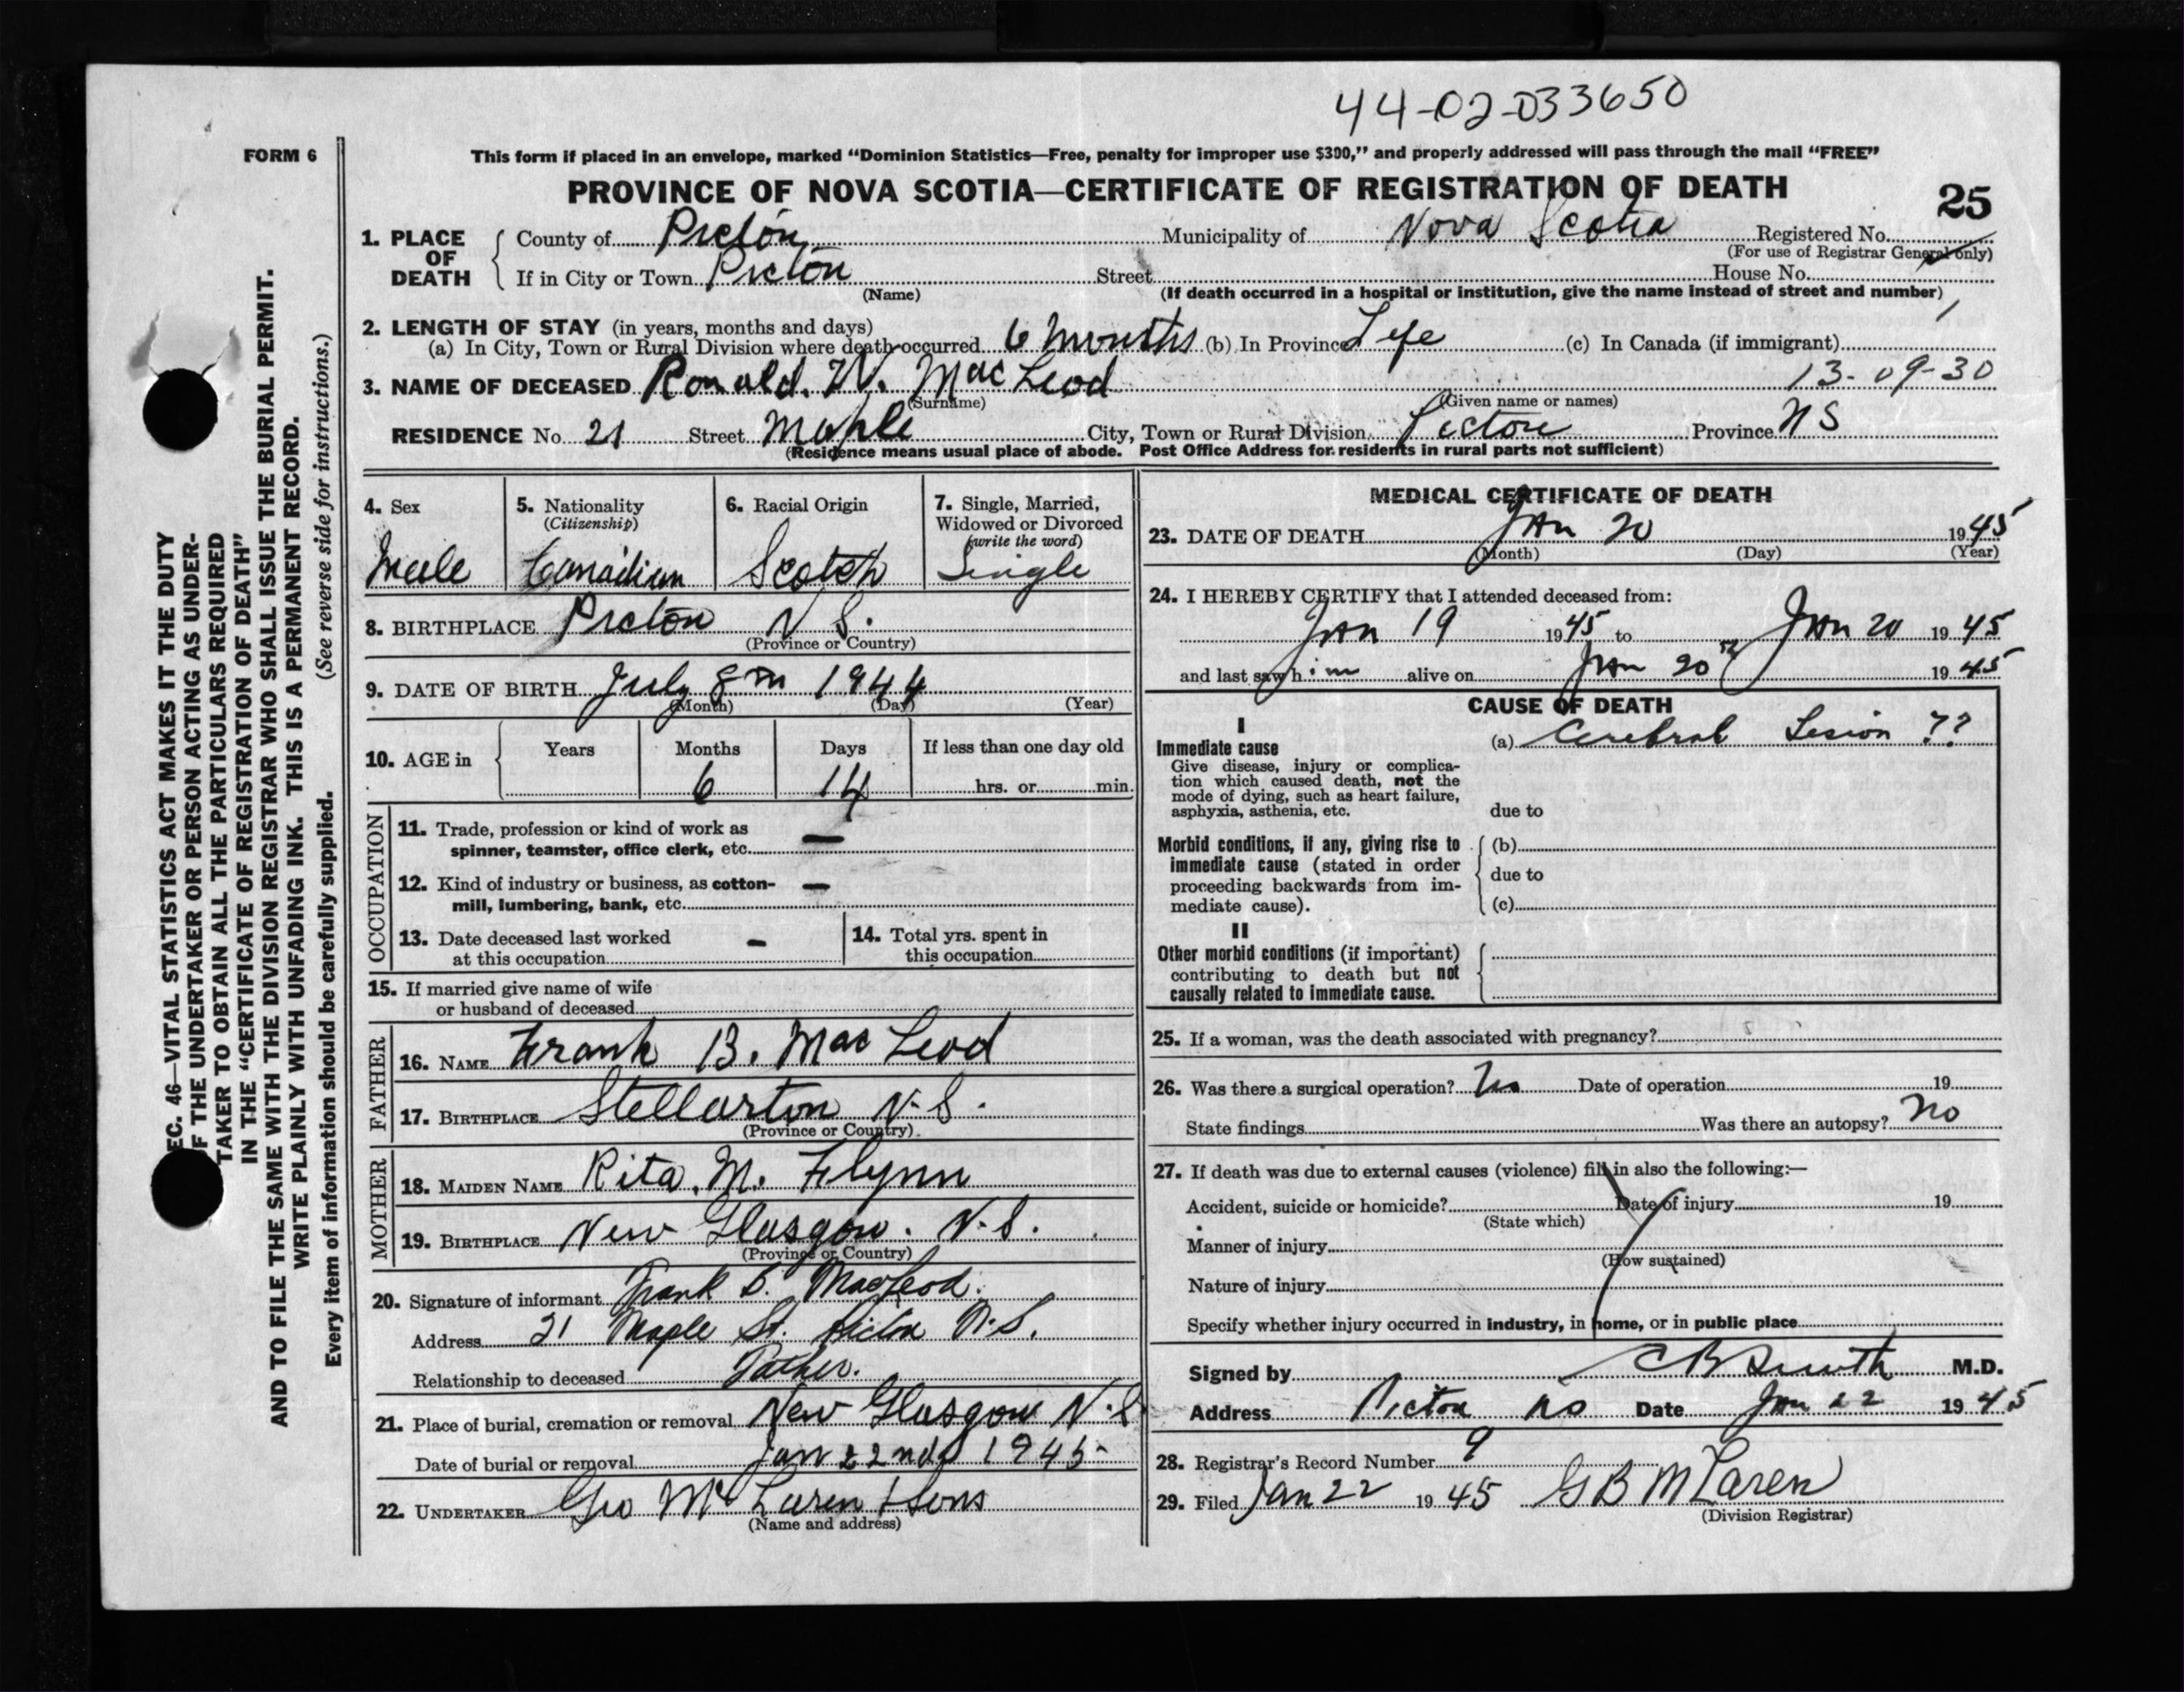 44-02-033650
FORM 6
This form if placed in an envelope, marked "Dominion Statistics—Free, penalty for improper use $300," and properly addressed will pass through the mail "FREE"
PROVINCE OF NOVA SCOTIA—CERTIFICATE OF REGISTRATION OF DEATH
25
1. PLACE OF DEATH County of Pictou Municipality of Nova Scotia Registered No.
(For use of Registrar General only)
If in City or Town Pictou Street House No.
(Name)
(If death occurred in a hospital or institution, give the name instead of street and number)
2. LENGTH OF STAY (in years, months and days)
(a) In City, Town or Rural Division where death occurred 6 Months (b) In Province Life (c) In Canada (if immigrant)
3. NAME OF DECEASED Ronald. W. MacLeod 13-09-30
(Surname) (Given name or names)
RESIDENCE No. 21 Street Maple City, Town or Rural Division Pictou Province N S
(Residence means usual place of abode. Post Office Address for residents in rural parts not sufficient)
4. Sex
Male
5. Nationality
(Citizenship)
Canadian
6. Racial Origin
Scotch
7. Single, Married,
Widowed or Divorced
(write the word)
Single
8. BIRTHPLACE Pictou N S.
(Province or Country)
9. DATE OF BIRTH July 8th 1944
(Month) (Day) (Year)
10. AGE in Years Months Days If less than one day old
6 14 hrs. or min.
OCCUPATION
11. Trade, profession or kind of work as
spinner, teamster, office clerk, etc. —
12. Kind of industry or business, as cotton-
mill, lumbering, bank, etc. —
13. Date deceased last worked
at this occupation —
14. Total yrs. spent in
this occupation
15. If married give name of wife
or husband of deceased
FATHER
16. NAME Frank B. MacLeod
17. BIRTHPLACE Stellarton N.S.
(Province or Country)
MOTHER
18. MAIDEN NAME Rita. M. Flynn
19. BIRTHPLACE New Glasgow. N.S.
(Province or Country)
20. Signature of informant Frank B. MacLeod.
Address 21 Maple St. Pictou N.S.
Relationship to deceased Father.
21. Place of burial, cremation or removal New Glasgow N.S
Date of burial or removal Jan 22nd 1945
22. UNDERTAKER Geo McLaren & Sons
(Name and address)
MEDICAL CERTIFICATE OF DEATH
23. DATE OF DEATH Jan 20 1945
(Month) (Day) (Year)
24. I HEREBY CERTIFY that I attended deceased from:
Jan 19 1945 to Jan 20 1945
and last saw him alive on Jan 20th 1945
CAUSE OF DEATH
I
Immediate cause
Give disease, injury or complica-
tion which caused death, not the
mode of dying, such as heart failure,
asphyxia, asthenia, etc.
(a) Cerebral Lesion ??
due to
Morbid conditions, if any, giving rise to
immediate cause (stated in order
proceeding backwards from im-
mediate cause).
(b)
due to
(c)
II
Other morbid conditions (if important)
contributing to death but not
causally related to immediate cause.
25. If a woman, was the death associated with pregnancy?
26. Was there a surgical operation? No Date of operation 19
State findings Was there an autopsy? No
27. If death was due to external causes (violence) fill in also the following:—
Accident, suicide or homicide? Date of injury 19
(State which)
Manner of injury
(How sustained)
Nature of injury
Specify whether injury occurred in industry, in home, or in public place
Signed by C B Smith M.D.
Address Pictou NS Date Jan 22 1945
28. Registrar's Record Number 9
29. Filed Jan 22 1945 G B McLaren
(Division Registrar)
EC. 46—VITAL STATISTICS ACT MAKES IT THE DUTY
OF THE UNDERTAKER OR PERSON ACTING AS UNDER-
TAKER TO OBTAIN ALL THE PARTICULARS REQUIRED
IN THE "CERTIFICATE OF REGISTRATION OF DEATH"
AND TO FILE THE SAME WITH THE DIVISION REGISTRAR WHO SHALL ISSUE THE BURIAL PERMIT.
WRITE PLAINLY WITH UNFADING INK. THIS IS A PERMANENT RECORD.
(See reverse side for instructions.)
Every item of information should be carefully supplied.